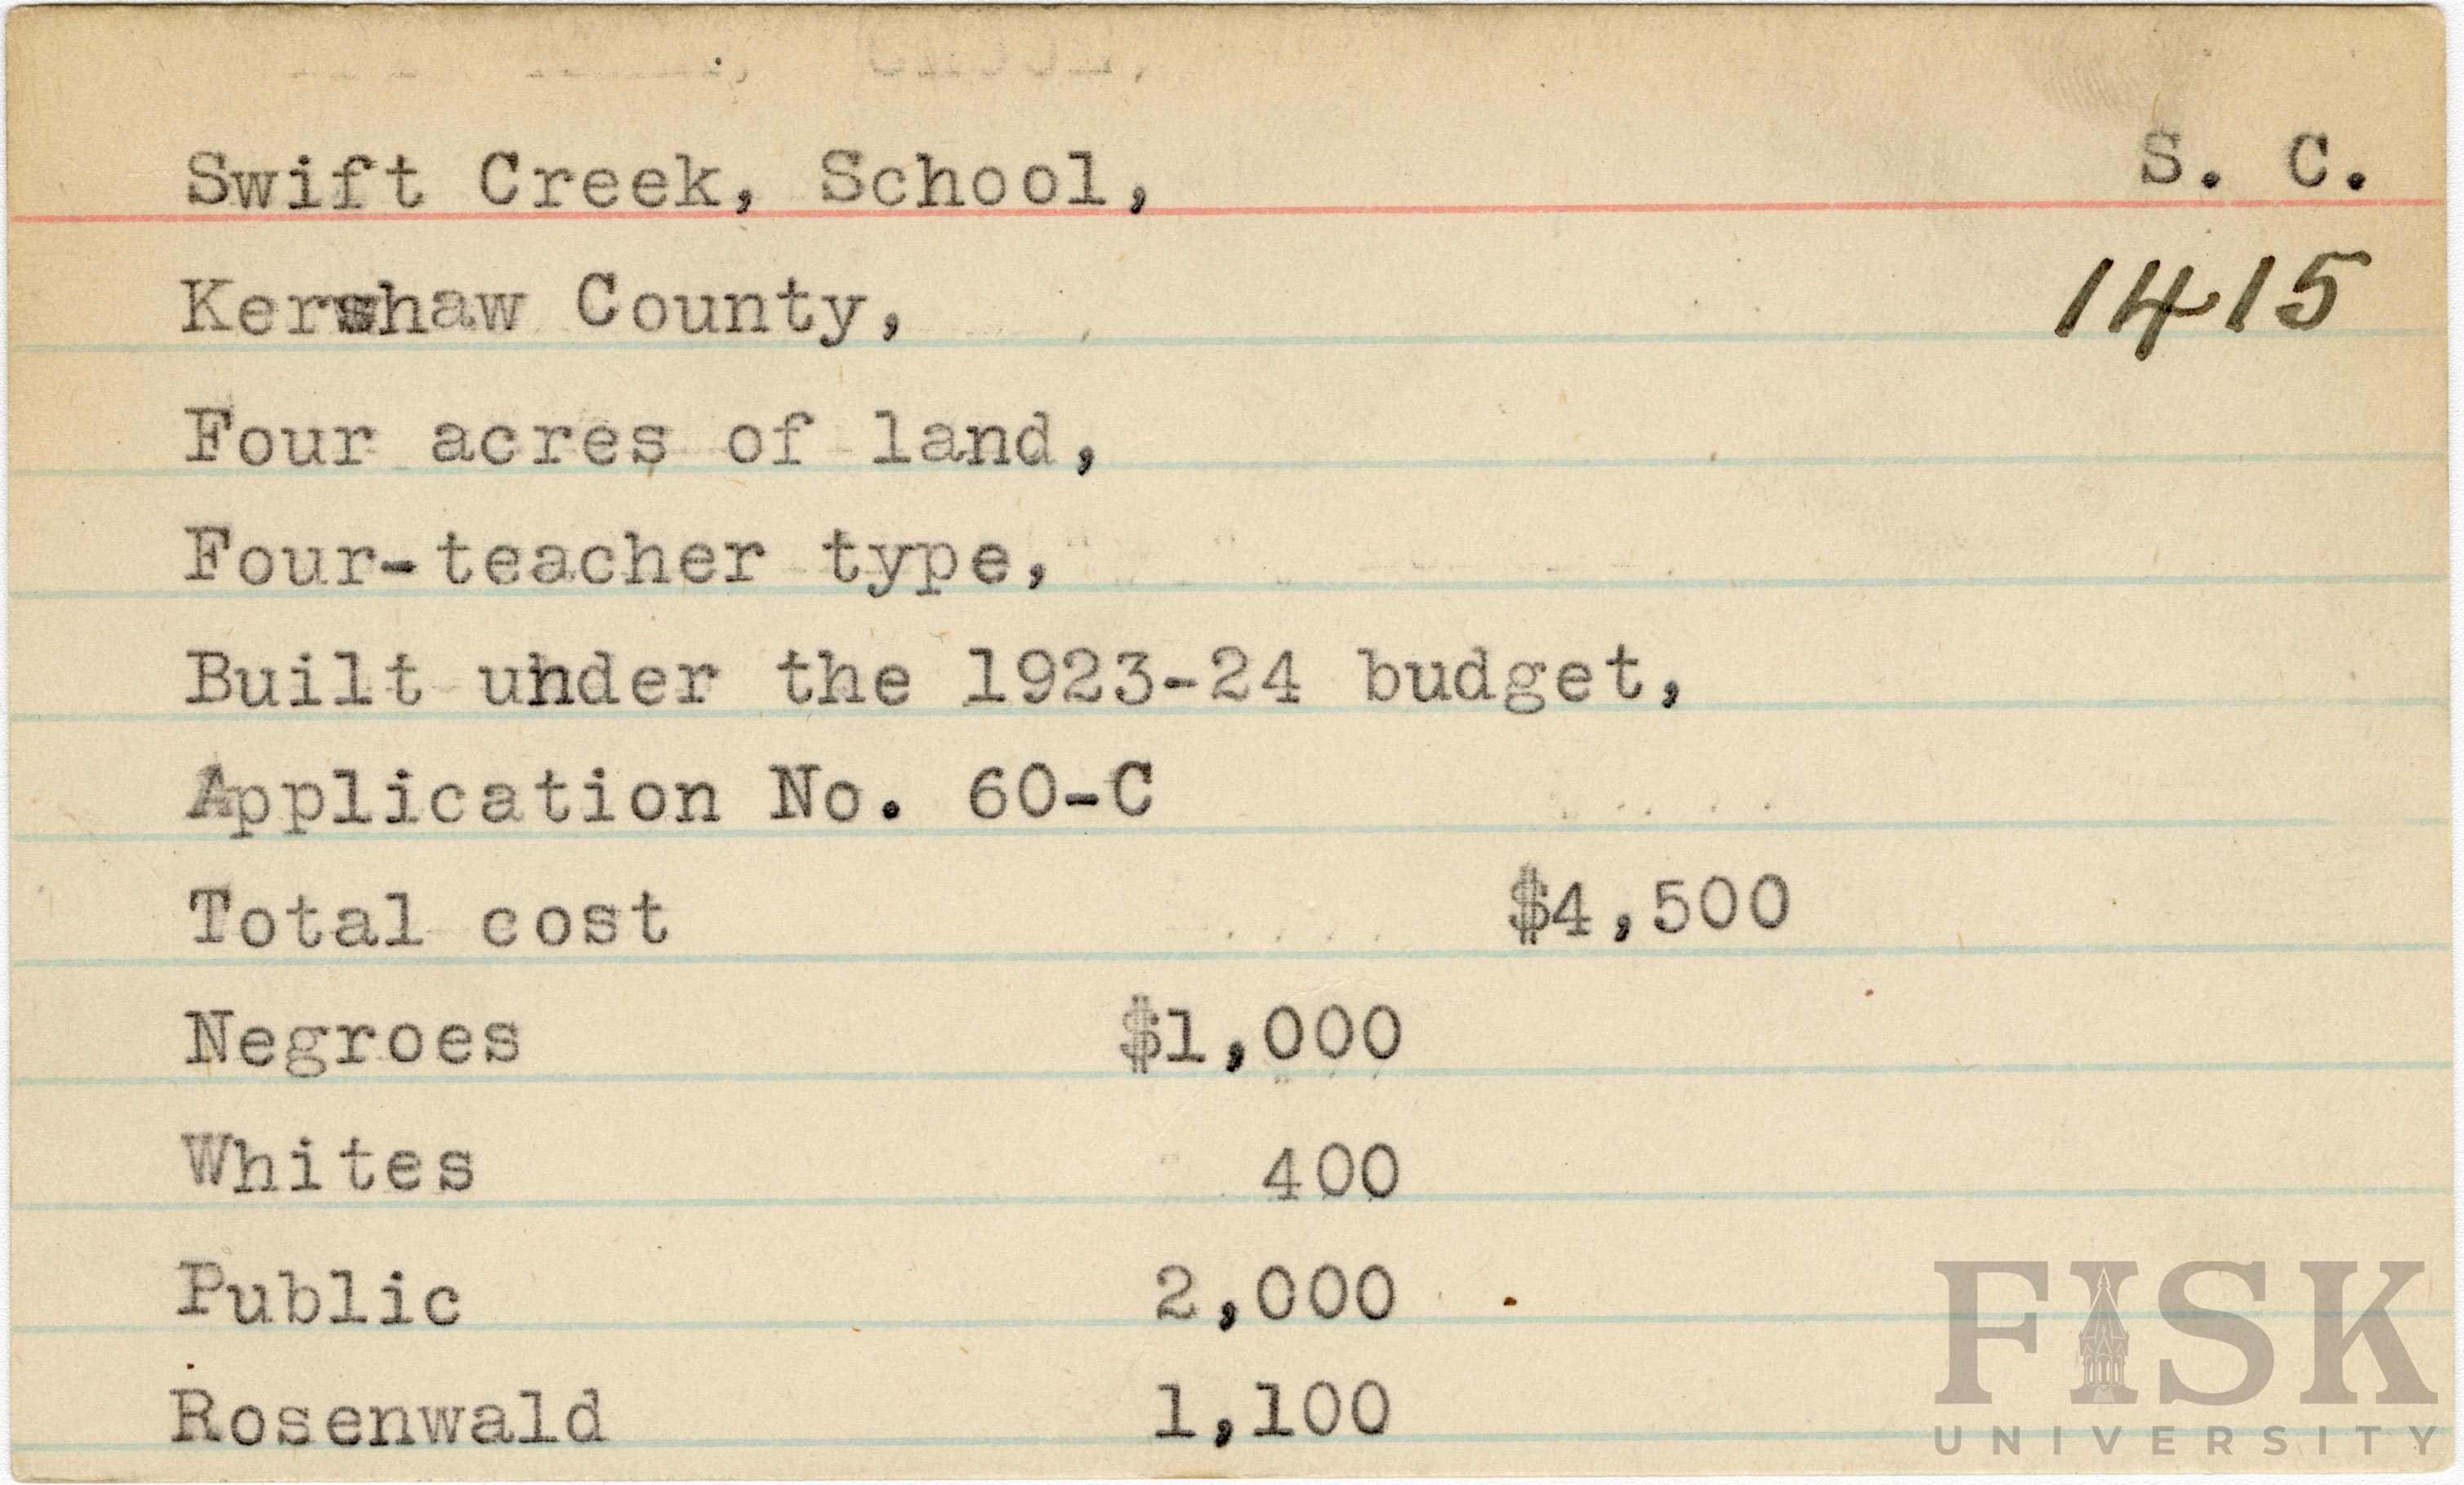 Swift Creek, School, S. C.
Kershaw County, 1415
Four acres of land,
Four-teacher type,
Built under the 1923-24 budget,
Application No. 60-C
Total cost $4,500
Negroes $1,000
Whites 400
Public 2,000
Rosenwald 1,100
FISK
UNIVERSITY